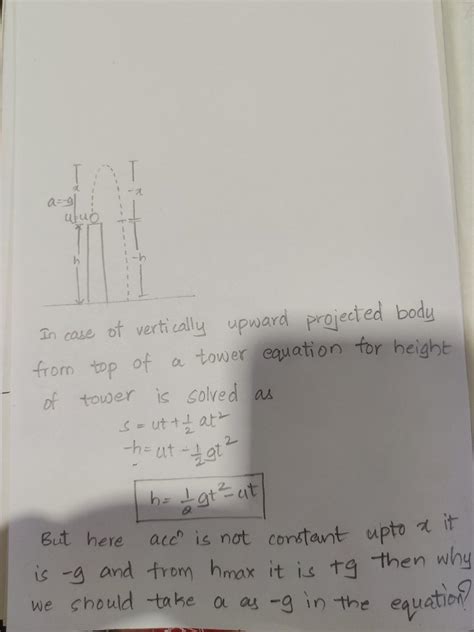 x
-x
a=-g
u
u
h
-h
In case of vertically upward projected body
from top of a tower equation for height
of tower is solved as
s = ut + 1/2 at²
-h = ut - 1/2 gt²
h = 1/2 gt² - ut
But here accⁿ is not constant upto x it
is -g and from hmax it is +g then why
we should take a as -g in the equation?